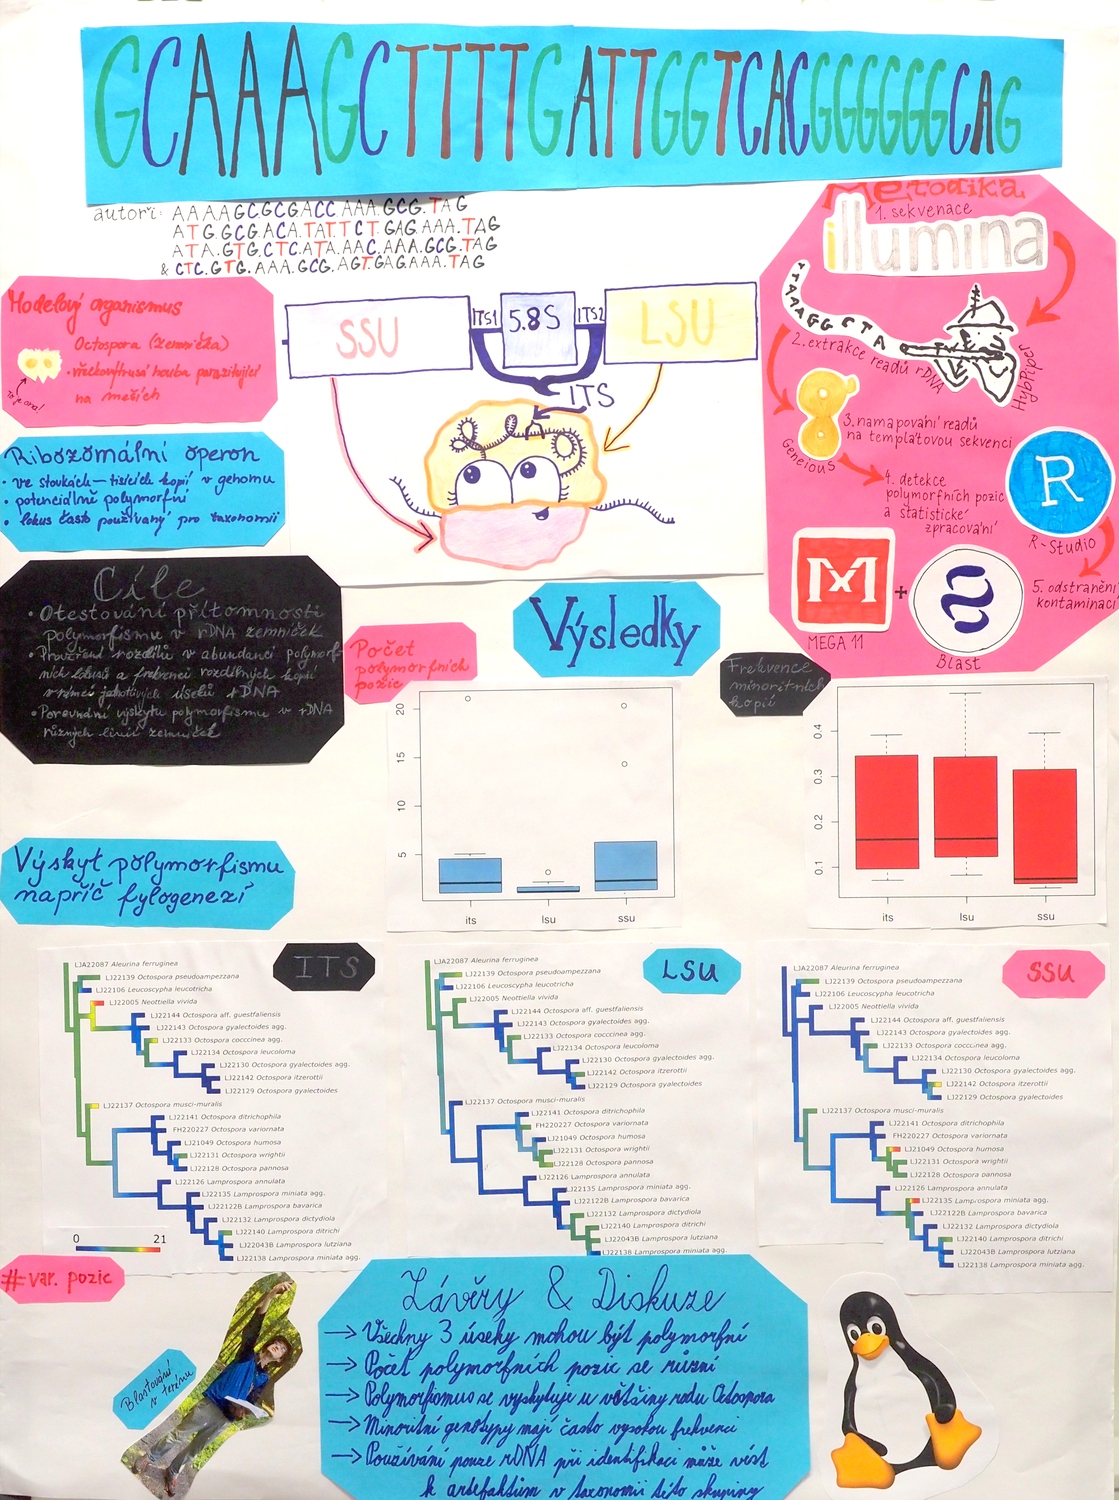 GCAAAGCTTTTGATTGGTCACGGGGGGCAG
autoři: AAAAGCGCGACC.AAA.GCG.TAG
ATG.GCG.ACA.TAT.TCT.GAG.AAA.TAG
ATA.GTG.CTC.ATA.AAC.AAA.GCG.TAG
& CTC.GTG.AAA.GCG.AGT.GAG.AAA.TAG
Modelový organismus
Octospora (zemnička)
• vřeckovýtrusá houba parazitující
na meších
Ribozomální operon
• ve stovkách – tisících kopií v genomu
• potenciálně polymorfní
• lokus často používaný pro taxonomii
Cíle
• Otestování přítomnosti
polymorfismu v rDNA zemniček
• Porovnání výskytu polymorfismu v rDNA
různých linií zemniček
SSU
ITS1
5.8S
ITS2
LSU
ITS
Metodika
1. sekvenace
illumina
TAAAGGCTA
2. extrakce readů rDNA
HybPiper
Geneious
3. namapování readů
na templátovou sekvenci
4. detekce
polymorfních pozic
a statistické
zpracování
R
R-Studio
5. odstranění
kontaminací
M
MEGA 11
+
Blast
Výsledky
Počet
polymorfních
pozic
20
15
10
5
its
lsu
ssu
Frekvence
minoritních
kopií
0.4
0.3
0.2
0.1
its
lsu
ssu
Výskyt polymorfismu
napříč fylogenezí
ITS
LJA22087 Aleurina ferruginea
LJ22139 Octospora pseudoampezzana
LJ22106 Leucoscypha leucotricha
LJ22005 Neottiella vivida
LJ22144 Octospora aff. guestfaliensis
LJ22143 Octospora gyalectoides agg.
LJ22133 Octospora coccinea agg.
LJ22134 Octospora leucoloma
LJ22130 Octospora gyalectoides agg.
LJ22142 Octospora itzerottii
LJ22129 Octospora gyalectoides
LJ22137 Octospora musci-muralis
LJ22141 Octospora ditrichophila
FH220227 Octospora variornata
LJ21049 Octospora humosa
LJ22131 Octospora wrightii
LJ22128 Octospora pannosa
LJ22126 Lamprospora annulata
LJ22135 Lamprospora miniata agg.
LJ22122B Lamprospora bavarica
LJ22132 Lamprospora dictydiola
LJ22140 Lamprospora ditrichi
LJ22043B Lamprospora lutziana
LJ22138 Lamprospora miniata agg.
0 21
# var. pozic
LSU
LJA22087 Aleurina ferruginea
LJ22139 Octospora pseudoampezzana
LJ22106 Leucoscypha leucotricha
LJ22005 Neottiella vivida
LJ22144 Octospora aff. guestfaliensis
LJ22143 Octospora gyalectoides agg.
LJ22133 Octospora coccinea agg.
LJ22134 Octospora leucoloma
LJ22130 Octospora gyalectoides agg.
LJ22142 Octospora itzerottii
LJ22129 Octospora gyalectoides
LJ22137 Octospora musci-muralis
LJ22141 Octospora ditrichophila
FH220227 Octospora variornata
LJ21049 Octospora humosa
LJ22131 Octospora wrightii
LJ22128 Octospora pannosa
LJ22126 Lamprospora annulata
LJ22135 Lamprospora miniata agg.
LJ22122B Lamprospora bavarica
LJ22132 Lamprospora dictydiola
LJ22140 Lamprospora ditrichi
LJ22043B Lamprospora lutziana
LJ22138 Lamprospora miniata agg.
SSU
LJA22087 Aleurina ferruginea
LJ22139 Octospora pseudoampezzana
LJ22106 Leucoscypha leucotricha
LJ22005 Neottiella vivida
LJ22144 Octospora aff. guestfaliensis
LJ22143 Octospora gyalectoides agg.
LJ22133 Octospora coccinea agg.
LJ22134 Octospora leucoloma
LJ22130 Octospora gyalectoides agg.
LJ22142 Octospora itzerottii
LJ22129 Octospora gyalectoides
LJ22137 Octospora musci-muralis
LJ22141 Octospora ditrichophila
FH220227 Octospora variornata
LJ21049 Octospora humosa
LJ22131 Octospora wrightii
LJ22128 Octospora pannosa
LJ22126 Lamprospora annulata
LJ22135 Lamprospora miniata agg.
LJ22122B Lamprospora bavarica
LJ22132 Lamprospora dictydiola
LJ22140 Lamprospora ditrichi
LJ22043B Lamprospora lutziana
LJ22138 Lamprospora miniata agg.
Blastování
v terénu
Závěry & Diskuze
→ Všechny 3 úseky mohou být polymorfní
→ Počet polymorfních pozic se různí
→ Polymorfismus se vyskytuje u většiny rodu Octospora
→ Minoritní genotypy mají často vysokou frekvenci
→ Používání pouze rDNA při identifikaci může vést
k artefaktům v taxonomii této skupiny